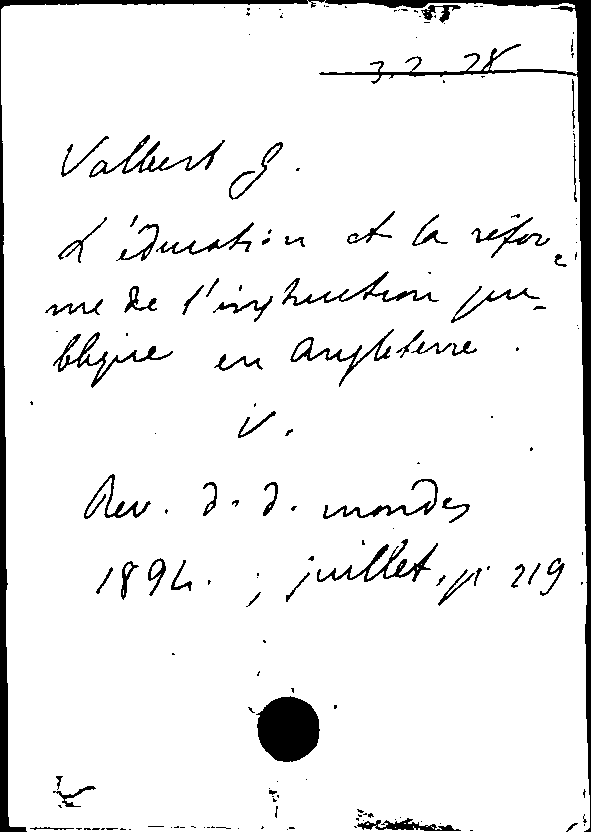 3.2.28
Valbert G.
L'éducation et la réfor-
me de l'instruction pu-
blique en Angleterre.
v.
Rev. d. d. mondes
1894. ; juillet, p. 219